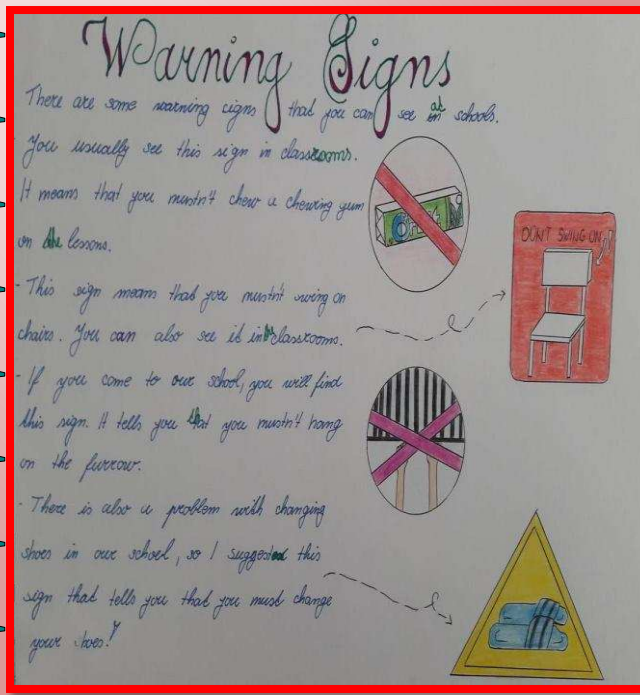 Warning Signs
There are some warning signs that you can see at schools.
You usually see this sign in classrooms.
It means that you mustn't chew a chewing gum
on the lessons.
- This sign means that you mustn't swing on
chairs. You can also see it in classrooms.
DON'T SWING ON
- If you come to our school, you will find
this sign. It tells you that you mustn't hang
on the furrow.
- There is also a problem with changing
shoes in our school, so I suggested this
sign that tells you that you must change
your shoes!